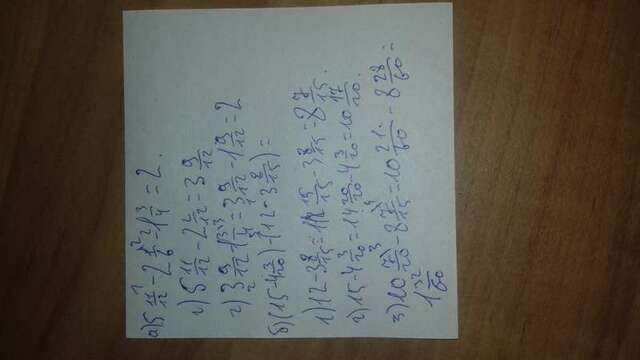 а) 5 11/12 - 2 1/6 - 1 3/4 = 2.
1) 5 11/12 - 2 2/12 = 3 9/12
2) 3 9/12 - 1 3/4 = 3 9/12 - 1 9/12 = 2
б) (15 - 4 3/20) - (12 - 3 8/15) =
1) 12 - 3 8/15 = 11 15/15 - 3 8/15 = 8 7/15.
2) 15 - 4 3/20 = 14 20/20 - 4 3/20 = 10 17/20.
3) 10 7/20 - 8 7/15 = 10 21/60 - 8 28/60 =
1 32/60